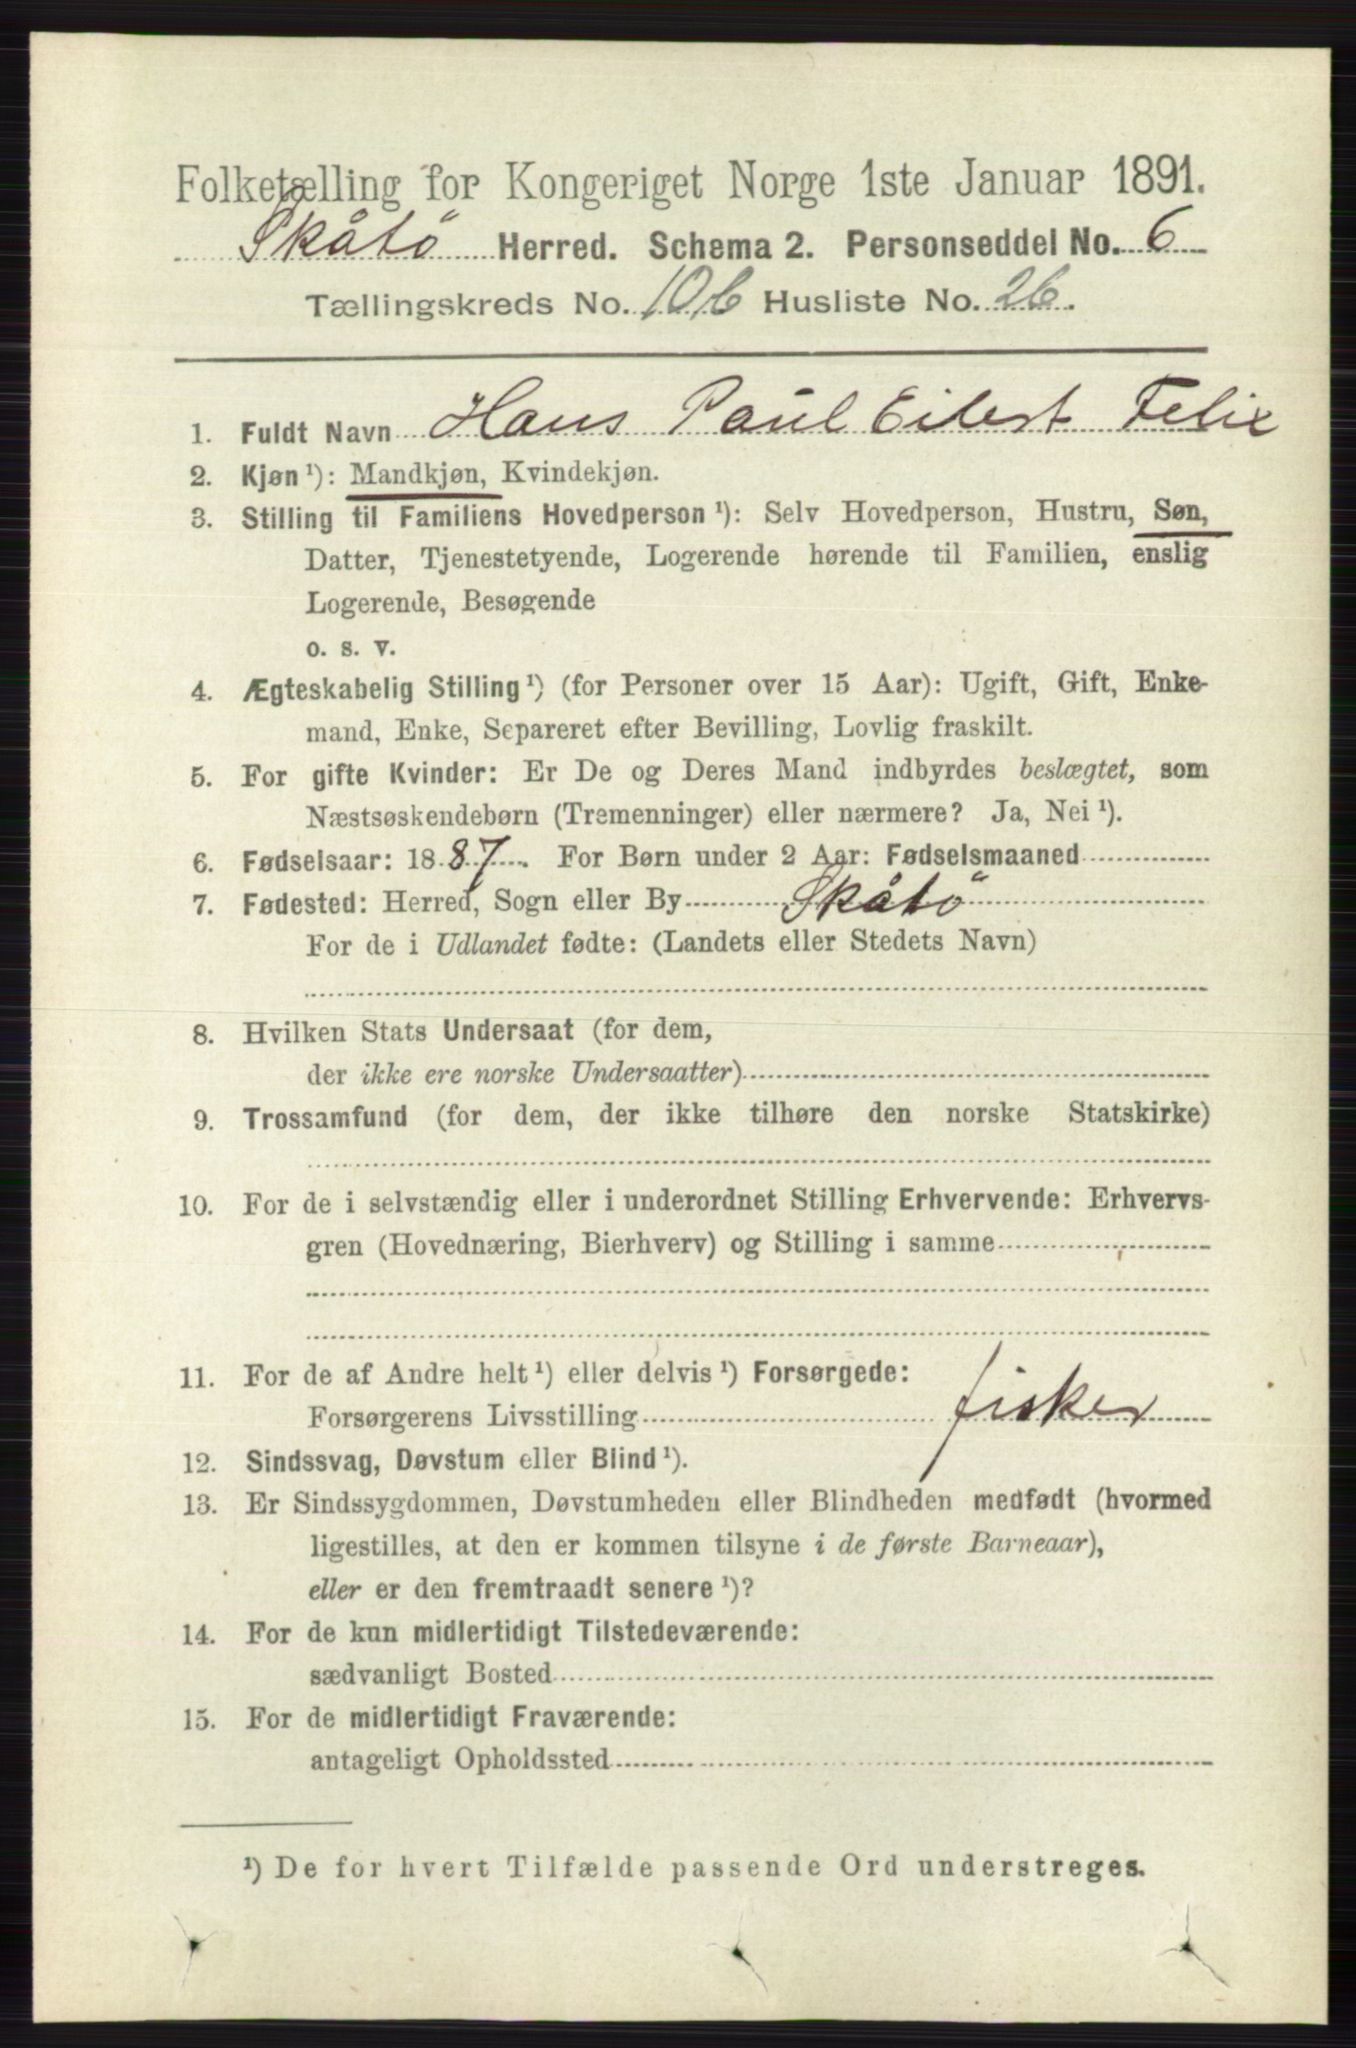 Folketælling for Kongeriget Norge 1ste Januar 1891.
Skåtö Herred. Schema 2. Personseddel No. 6
Tællingskreds No. 10b Husliste No. 26.
1. Fuldt Navn Hans Paul Eilert Felix
2. Kjøn¹): Mandkjøn, Kvindekjøn.
3. Stilling til Familiens Hovedperson¹): Selv Hovedperson, Hustru, Søn,
Datter, Tjenestetyende, Logerende hørende til Familien, enslig
Logerende, Besøgende
o. s. v.
4. Ægteskabelig Stilling¹) (for Personer over 15 Aar): Ugift, Gift, Enke-
mand, Enke, Separeret efter Bevilling, Lovlig fraskilt.
5. For gifte Kvinder: Er De og Deres Mand indbyrdes beslægtet, som
Næstsøskendebørn (Tremenninger) eller nærmere? Ja, Nei¹).
6. Fødselsaar: 1887. For Børn under 2 Aar: Fødselsmaaned
7. Fødested: Herred, Sogn eller By Skåtö
For de i Udlandet fødte: (Landets eller Stedets Navn)
8. Hvilken Stats Undersaat (for dem,
der ikke ere norske Undersaatter)
9. Trossamfund (for dem, der ikke tilhøre den norske Statskirke)
10. For de i selvstændig eller i underordnet Stilling Erhvervende: Erhvervs-
gren (Hovednæring, Bierhverv) og Stilling i samme
11. For de af Andre helt¹) eller delvis¹) Forsørgede:
Forsørgerens Livsstilling fisker
12. Sindssvag, Døvstum eller Blind¹).
13. Er Sindssygdommen, Døvstumheden eller Blindheden medfødt (hvormed
ligestilles, at den er kommen tilsyne i de første Barneaar),
eller er den fremtraadt senere¹)?
14. For de kun midlertidigt Tilstedeværende:
sædvanligt Bosted
15. For de midlertidigt Fraværende:
antageligt Opholdssted
¹) De for hvert Tilfælde passende Ord understreges.